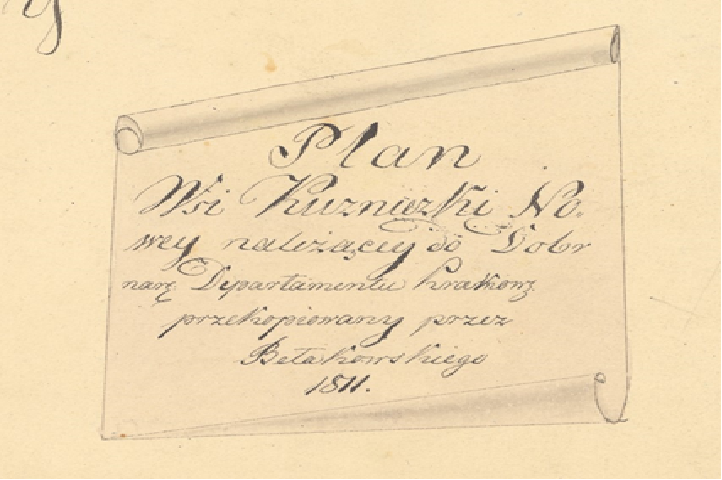 Plan
Wsi Kuzniczki No.
wey należący do Dobr
narę Departamentu krakow
przekopiowany przez
Betakowskiego
1811.